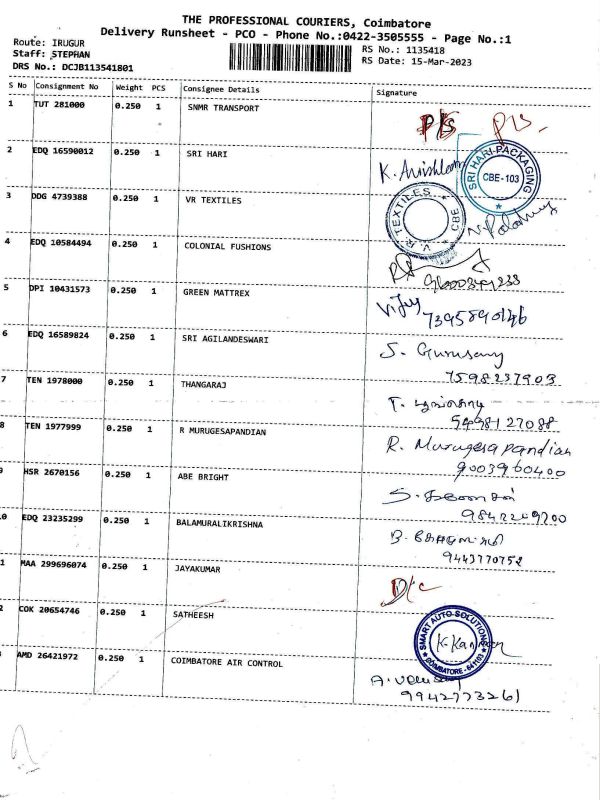 THE PROFESSIONAL COURIERS, Coimbatore
Delivery Runsheet - PCO - Phone No.:0422-3505555 - Page No.:1
Route: IRUGUR
RS No.: 1135418
Staff: STEPHAN
RS Date: 15-Mar-2023
DRS No.: DCJB113541801
S No Consignment No Weight PCS Consignee Details Signature
1 TUT 281000 0.250 1 SNMR TRANSPORT
P/S P/S-
2 EDQ 16590012 0.250 1 SRI HARI
SRI HARI PACKAGING
CBE-103
3 DDG 4739388 0.250 1 VR TEXTILES
V.R. TEXTILES CBE
4 EDQ 10584494 0.250 1 COLONIAL FUSHIONS
5 DPI 10431573 0.250 1 GREEN MATTREX
Vijay
7395890146
6 EDQ 16589824 0.250 1 SRI AGILANDESWARI
S. Gurusamy
7598237903
7 TEN 1978000 0.250 1 THANGARAJ
8 TEN 1977999 0.250 1 R MURUGESAPANDIAN
R. Murugesapandian
9003960400
9 HSR 2670156 0.250 1 ABE BRIGHT
0 EDQ 23235299 0.250 1 BALAMURALIKRISHNA
9443770752
1 MAA 299696074 0.250 1 JAYAKUMAR
D/C
2 COK 20654746 0.250 1 SATHEESH
SMART AUTO SOLUTION
COIMBATORE - 641103
AMD 26421972 0.250 1 COIMBATORE AIR CONTROL
9942773261